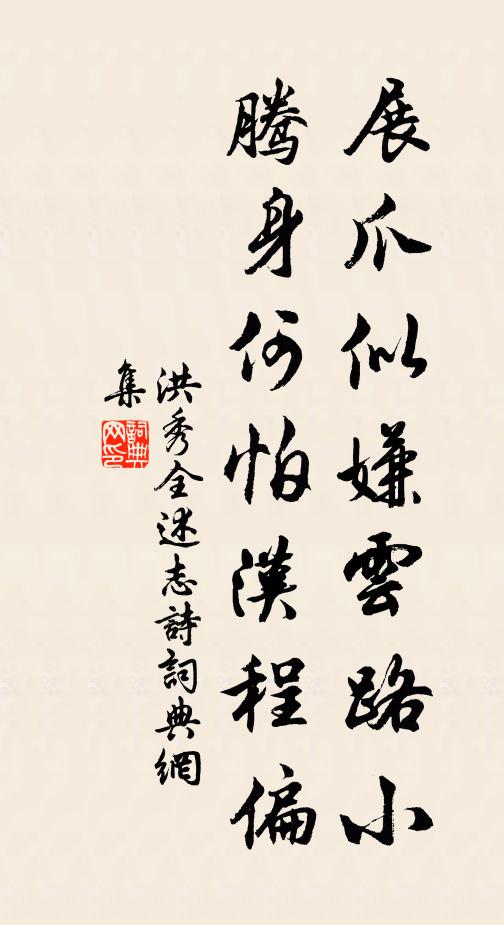 展爪似嫌雲路小
騰身何怕漢程偏
洪秀全述志詩詞典網
集
詞典網印